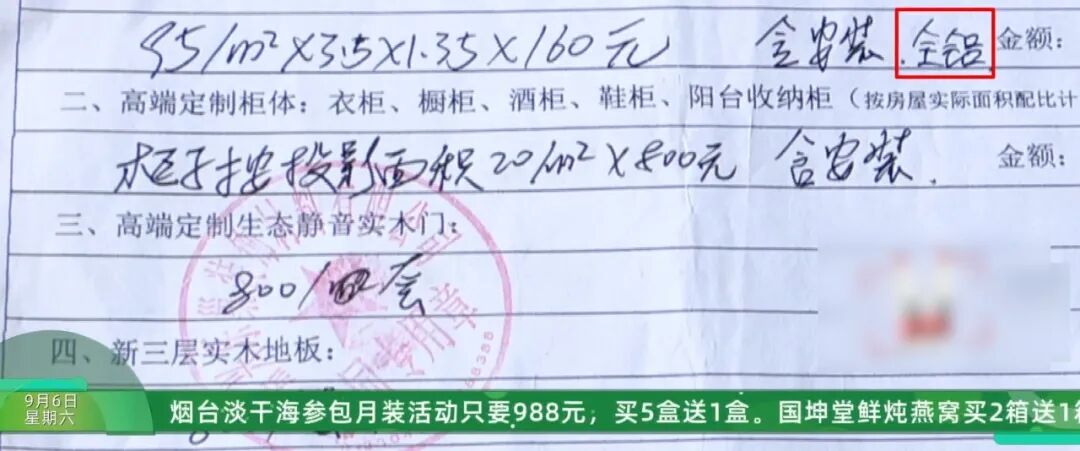 95/m²×3.5×1.35×160元 含安装.全铝 金额:
二、高端定制柜体：衣柜、橱柜、酒柜、鞋柜、阳台收纳柜（按房屋实际面积配比计
柜子按投影面积20/m²×800元 含安装. 金额:
三、高端定制生态静音实木门：
800/
四、新三层实木地板：
专用章
88388
9月6日
星期六
烟台淡干海参包月装活动只要988元，买5盒送1盒。国坤堂鲜炖燕窝买2箱送1箱